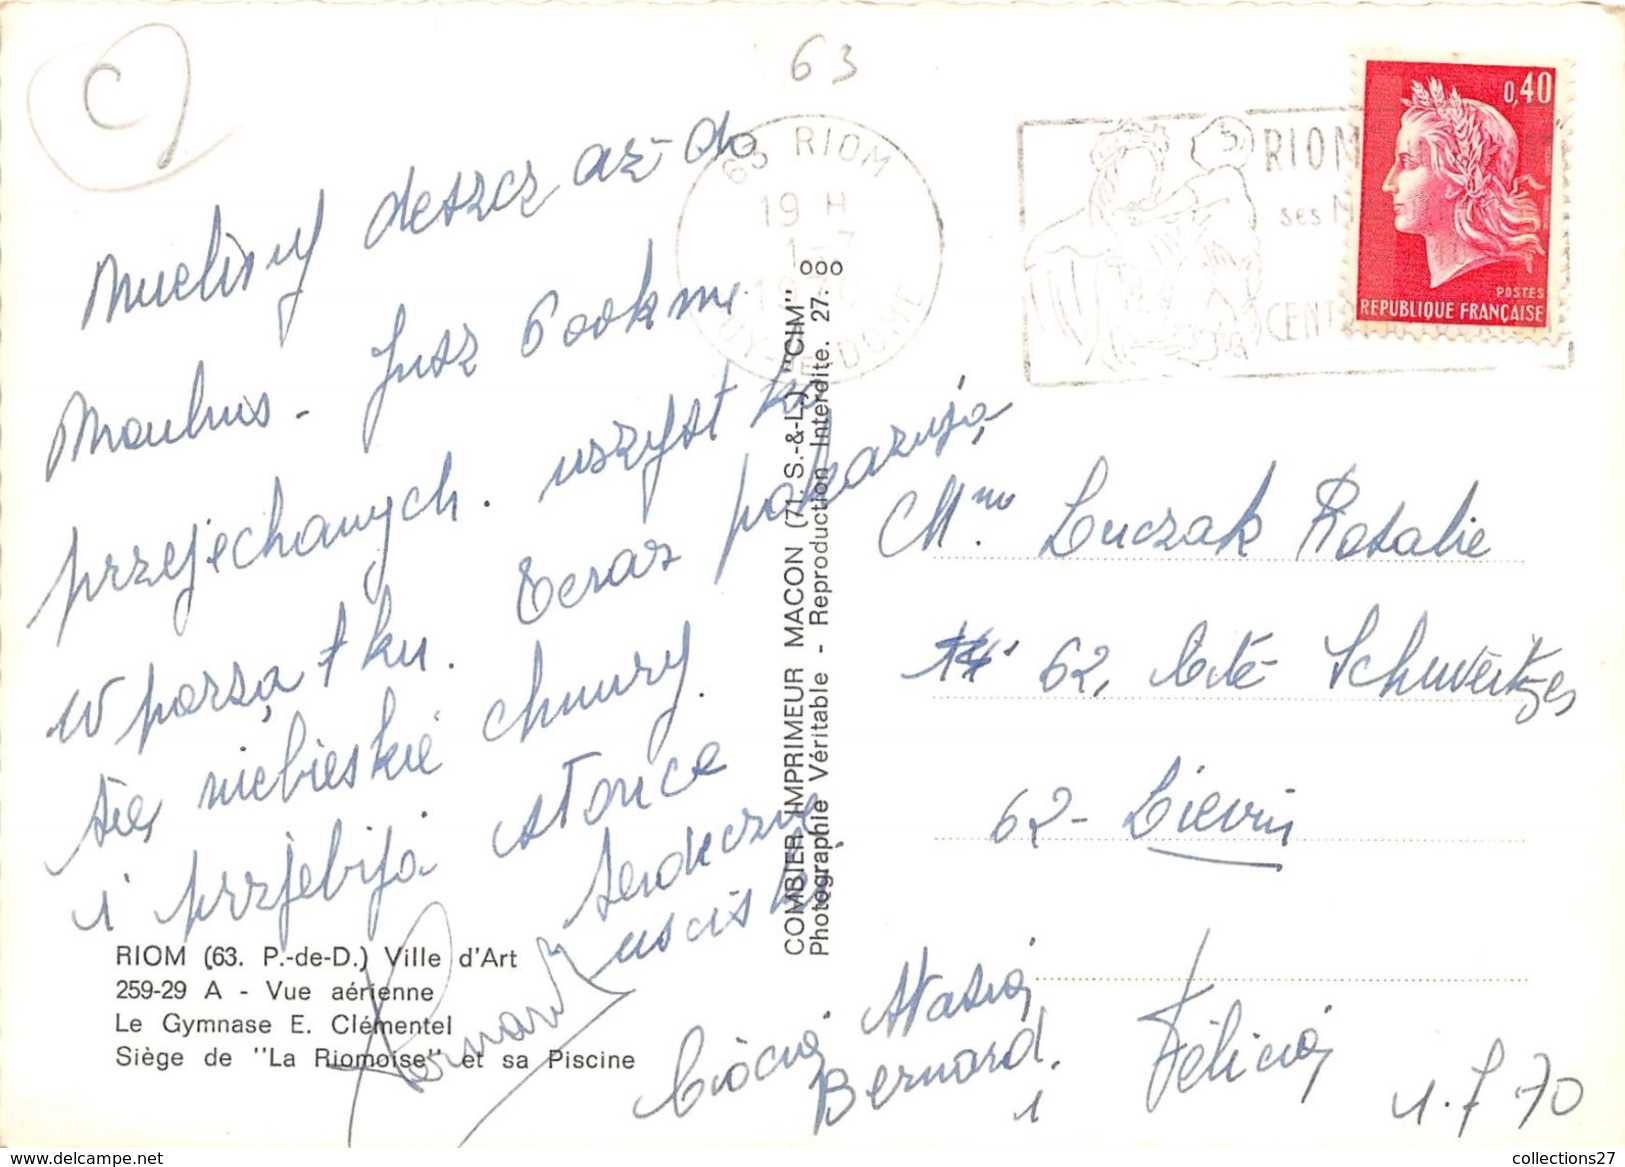 C
63
Mielismy deszcz aż do
Moulins - Jusz 600 km
przejechanych. wszystko
w porządku. Teras pokazują
się niebieskie chmury
i przjebija słonce
Serdeczne
usciski
Ciocia Stasia
Bernard.
i Félicia
1.7 70
Bernard
RIOM (63. P.-de-D.) Ville d'Art
259-29 A - Vue aérienne
Le Gymnase E. Clémentel
Siège de "La Riomoise" et sa Piscine
COMBIER IMPRIMEUR MACON (71. S.-&-L.) "CIM"
Photographie Véritable - Reproduction Interdite. 27.000
63 RIOM
19 H
1-7
1970
PUY-DE-DOME
RIOM
ses
0,40
POSTES
REPUBLIQUE FRANÇAISE
Mme. Luczak Rosalie
62, Cité Schuveitzes
62 - Liévin
collections27